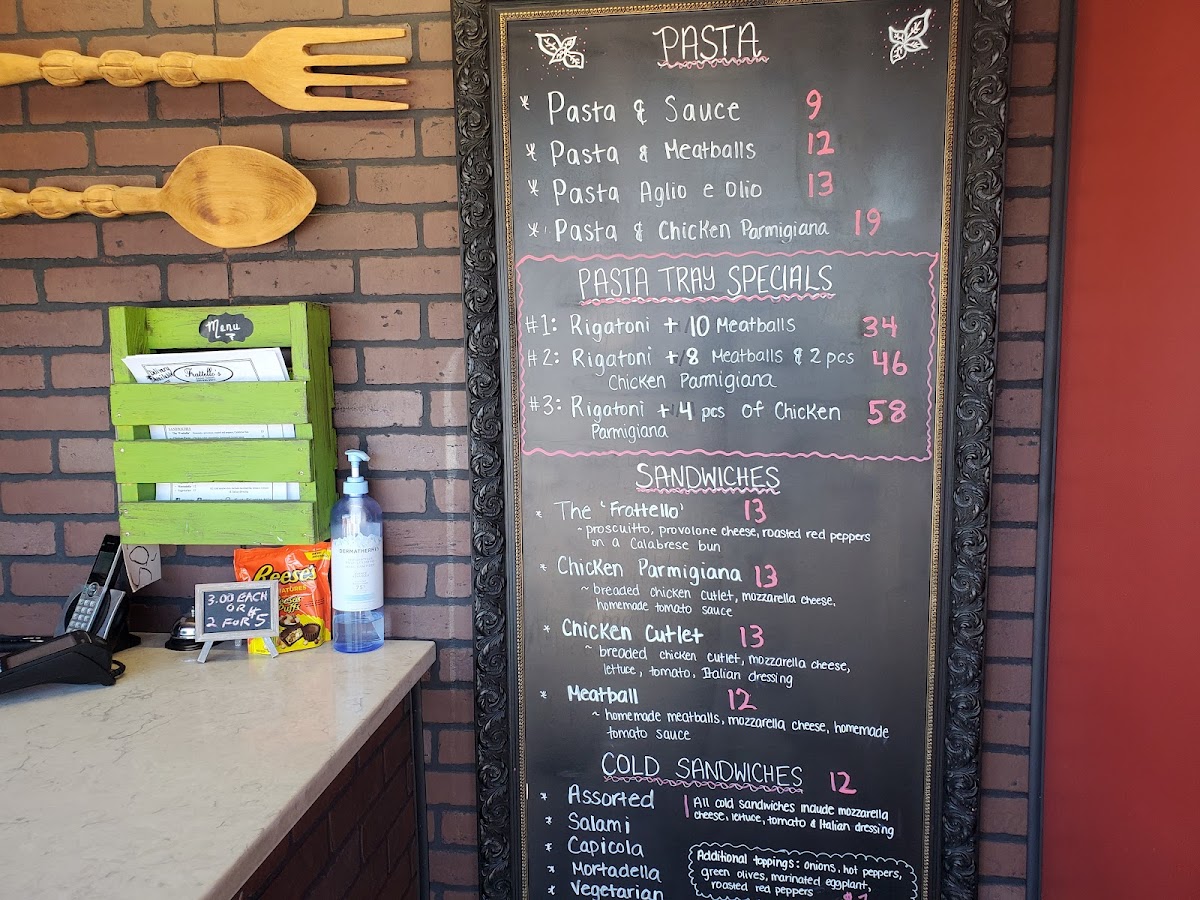 PASTA
* Pasta & Sauce 9
* Pasta & Meatballs 12
* Pasta Aglio e Olio 13
* Pasta & Chicken Parmigiana 19
PASTA TRAY SPECIALS
#1: Rigatoni + 10 Meatballs 34
#2: Rigatoni + 8 Meatballs & 2 pcs 46
Chicken Parmigiana
#3: Rigatoni + 4 pcs of Chicken 58
Parmigiana
SANDWICHES
* The 'Frattello' 13
~proscuitto, provolone cheese, roasted red peppers
on a Calabrese bun
* Chicken Parmigiana 13
~ breaded chicken cutlet, mozzarella cheese,
homemade tomato sauce
* Chicken Cutlet 13
~ breaded chicken cutlet, mozzarella cheese,
lettuce, tomato, Italian dressing
* Meatball 12
~ homemade meatballs, mozzarella cheese, homemade
tomato sauce
COLD SANDWICHES 12
* Assorted
* Salami
* Capicola
* Mortadella
* Vegetarian
All cold sandwiches include mozzarella
cheese, lettuce, tomato & Italian dressing
Additional toppings: onions, hot peppers,
green olives, marinated eggplant,
roasted red peppers
Menu
Frattello's
Reese's
Puffs
3.00 EACH
OR
2 FOR $5
DERMATHERM